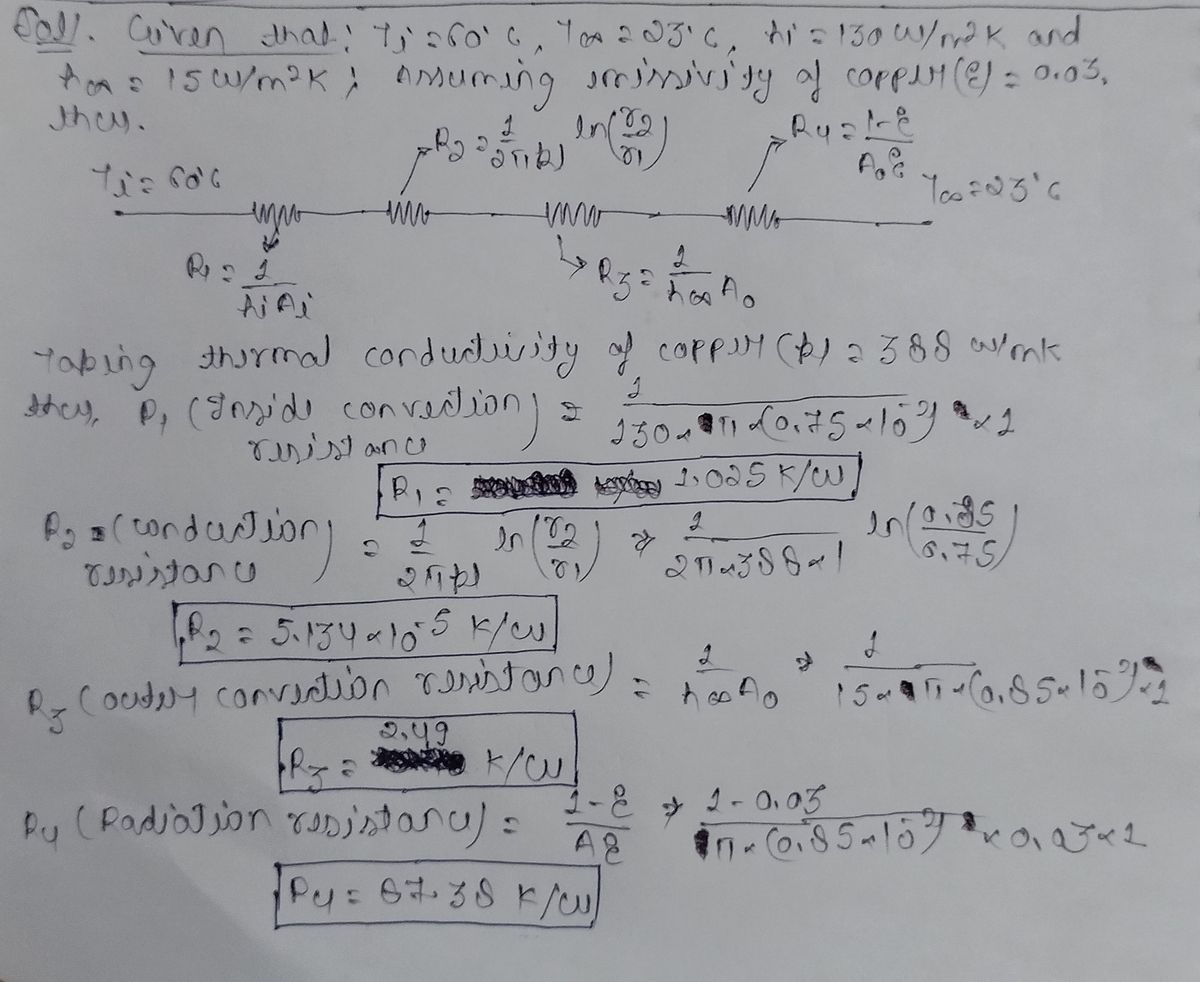 Soln. Given that: Ti = 60°C, T∞ = 23°C, hi = 130 W/m²K and
h∞ = 15 W/m²K; Assuming emissivity of copper (ε) = 0.03.
thus.
R2 = 1/2πkl ln(r2/r1)
R4 = 1-ε/A0ε
Ti = 60°C
T∞ = 23°C
R1 = 1/hiAi
R3 = 1/h∞A0
Taking thermal conductivity of copper (k) = 388 W/mK
thus, R1 (Inside convection resistance) = 1/130×π×(0.75×10⁻²)×1
R1 = 1.025 K/W
R2 = (conduction resistance) = 1/2πkl ln(r2/r1) ⇒ 1/2π×388×1 ln(0.85/0.75)
R2 = 5.134×10⁻⁵ K/W
R3 (outer convection resistance) = 1/h∞A0 ⇒ 1/15×π×(0.85×10⁻²)×1
R3 = 2.49 K/W
R4 (Radiation resistance) = 1-ε/Aε ⇒ 1-0.03/π×(0.85×10⁻²)×0.03×1
R4 = 67.38 K/W